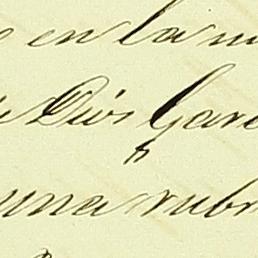 en la m
Dios Garc
una rubr